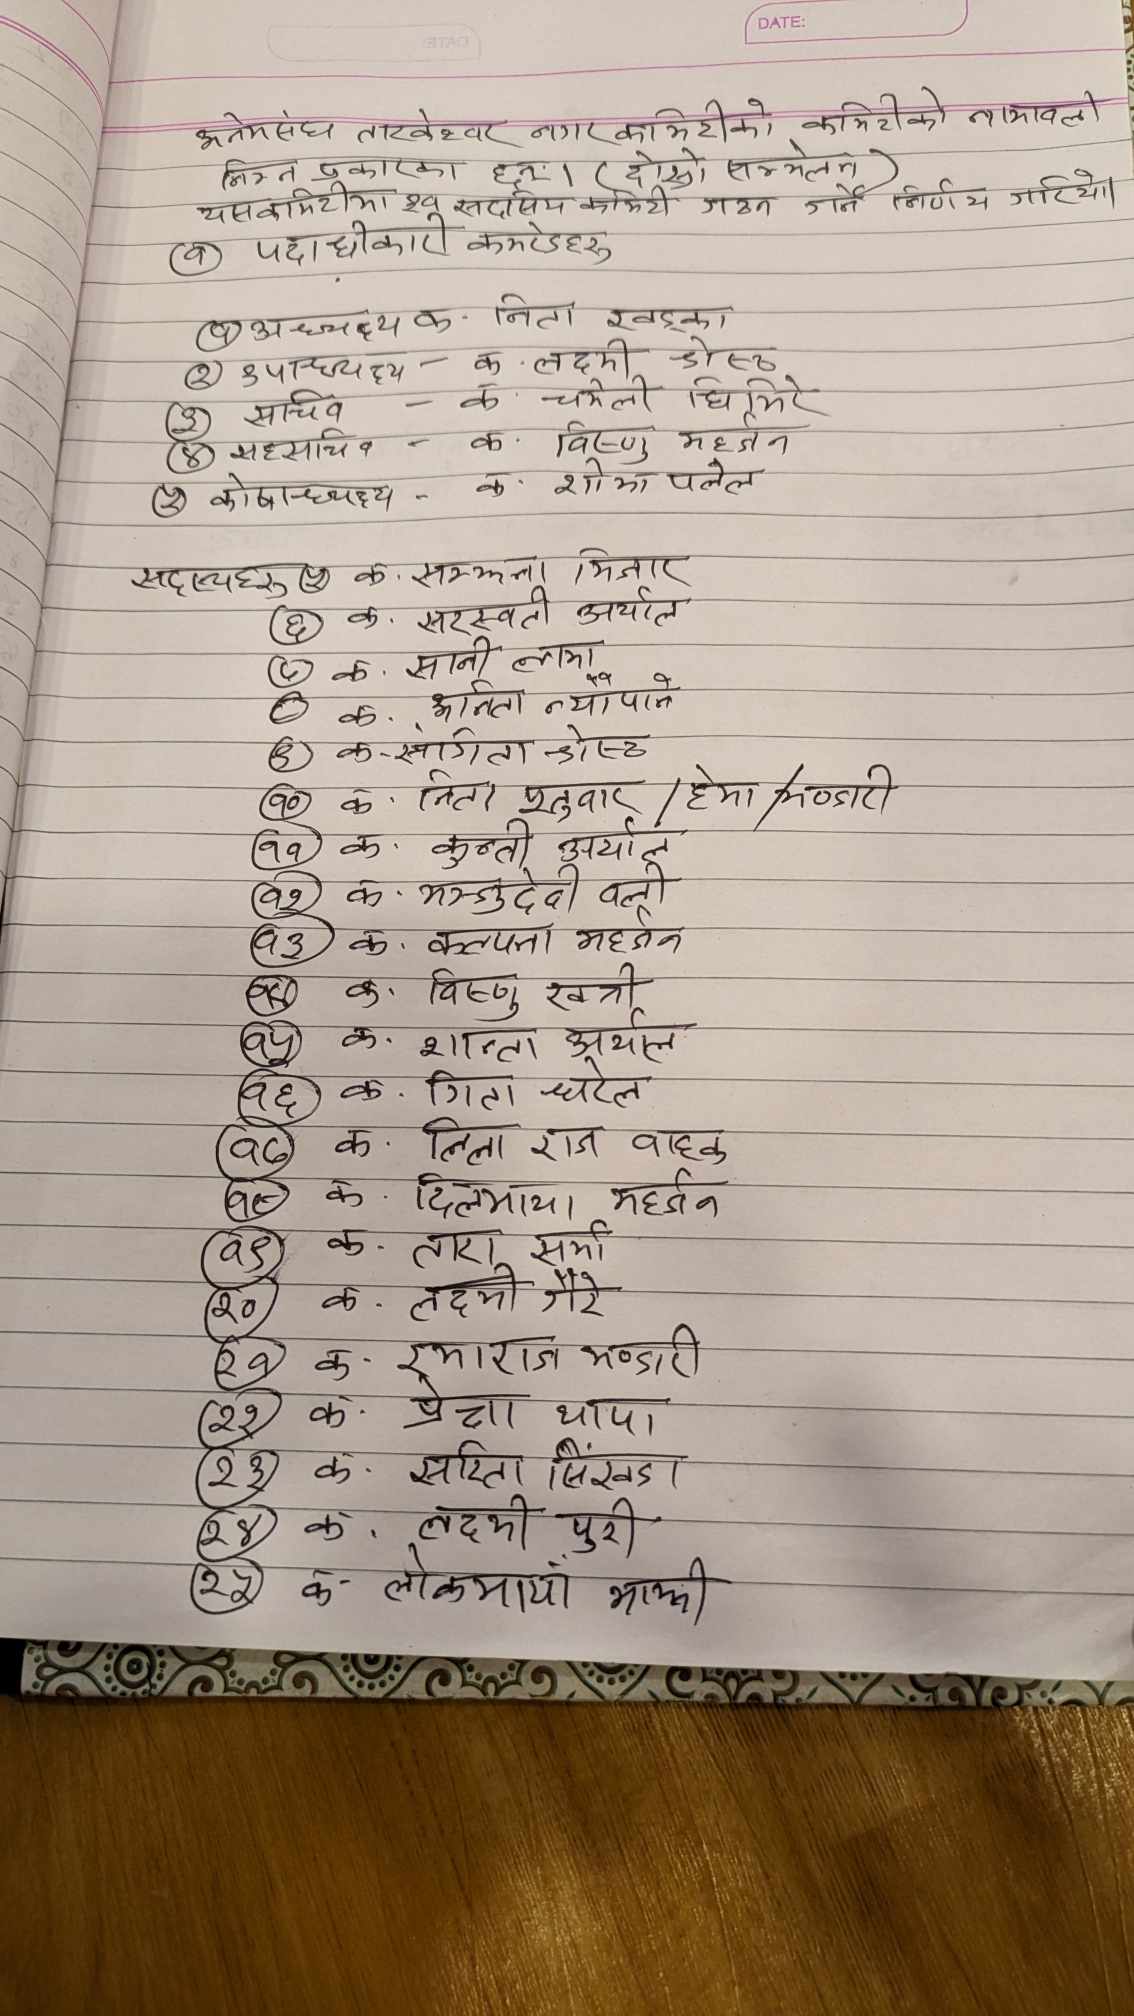 DATE:
अनेमसंघ तारकेश्वर नगर कमिटीको कमिटीको नामावली
निम्न प्रकारका छन्। (दोस्रो सम्मेलन)
यसकमिटीमा २५ सदसिय कमिटी गठन गर्ने निर्णय गरियो।
(क) पदाधीकारी कमरेडहरु
(१) अध्यक्ष्य क. निता खड्का
(२) उपाध्यक्ष्य - क. लक्ष्मी श्रेष्ठ
(३) सचिव - क. चमेली घिमिरे
(४) सहसचिव - क. विष्णु महर्जन
(५) कोषाध्यक्ष्य - क. शोभा पलेल
सदस्यहरु (५) क. सम्झना मिजार
(६) क. सरस्वती अर्याल
(७) क. सानी लामा
(८) क. अनिता न्यौपाने
(९) क - संगिता श्रेष्ठ
(१०) क. निता / हेमा / भण्डारी
(११) क. कुन्ती अर्याल
(१२) क. मञ्जुदेवी वली
(१३) क. कल्पना महर्जन
(१४) क. विष्णु खत्री
(१५) क. शान्ता अर्याल
(१६) क. गिता धरेल
(१७) क. लिला राज वाहक
(१८) क. दिलमाया महर्जन
(१९) क. तारा सर्मा
(२०) क. लक्ष्मी गैरे
(२१) क. भण्डारी
(२२) क. प्रेक्षा थापा
(२३) क. सरिता सिंखडा
(२४) क. लक्ष्मी पुरी
(२५) क - लोकमाया माझी